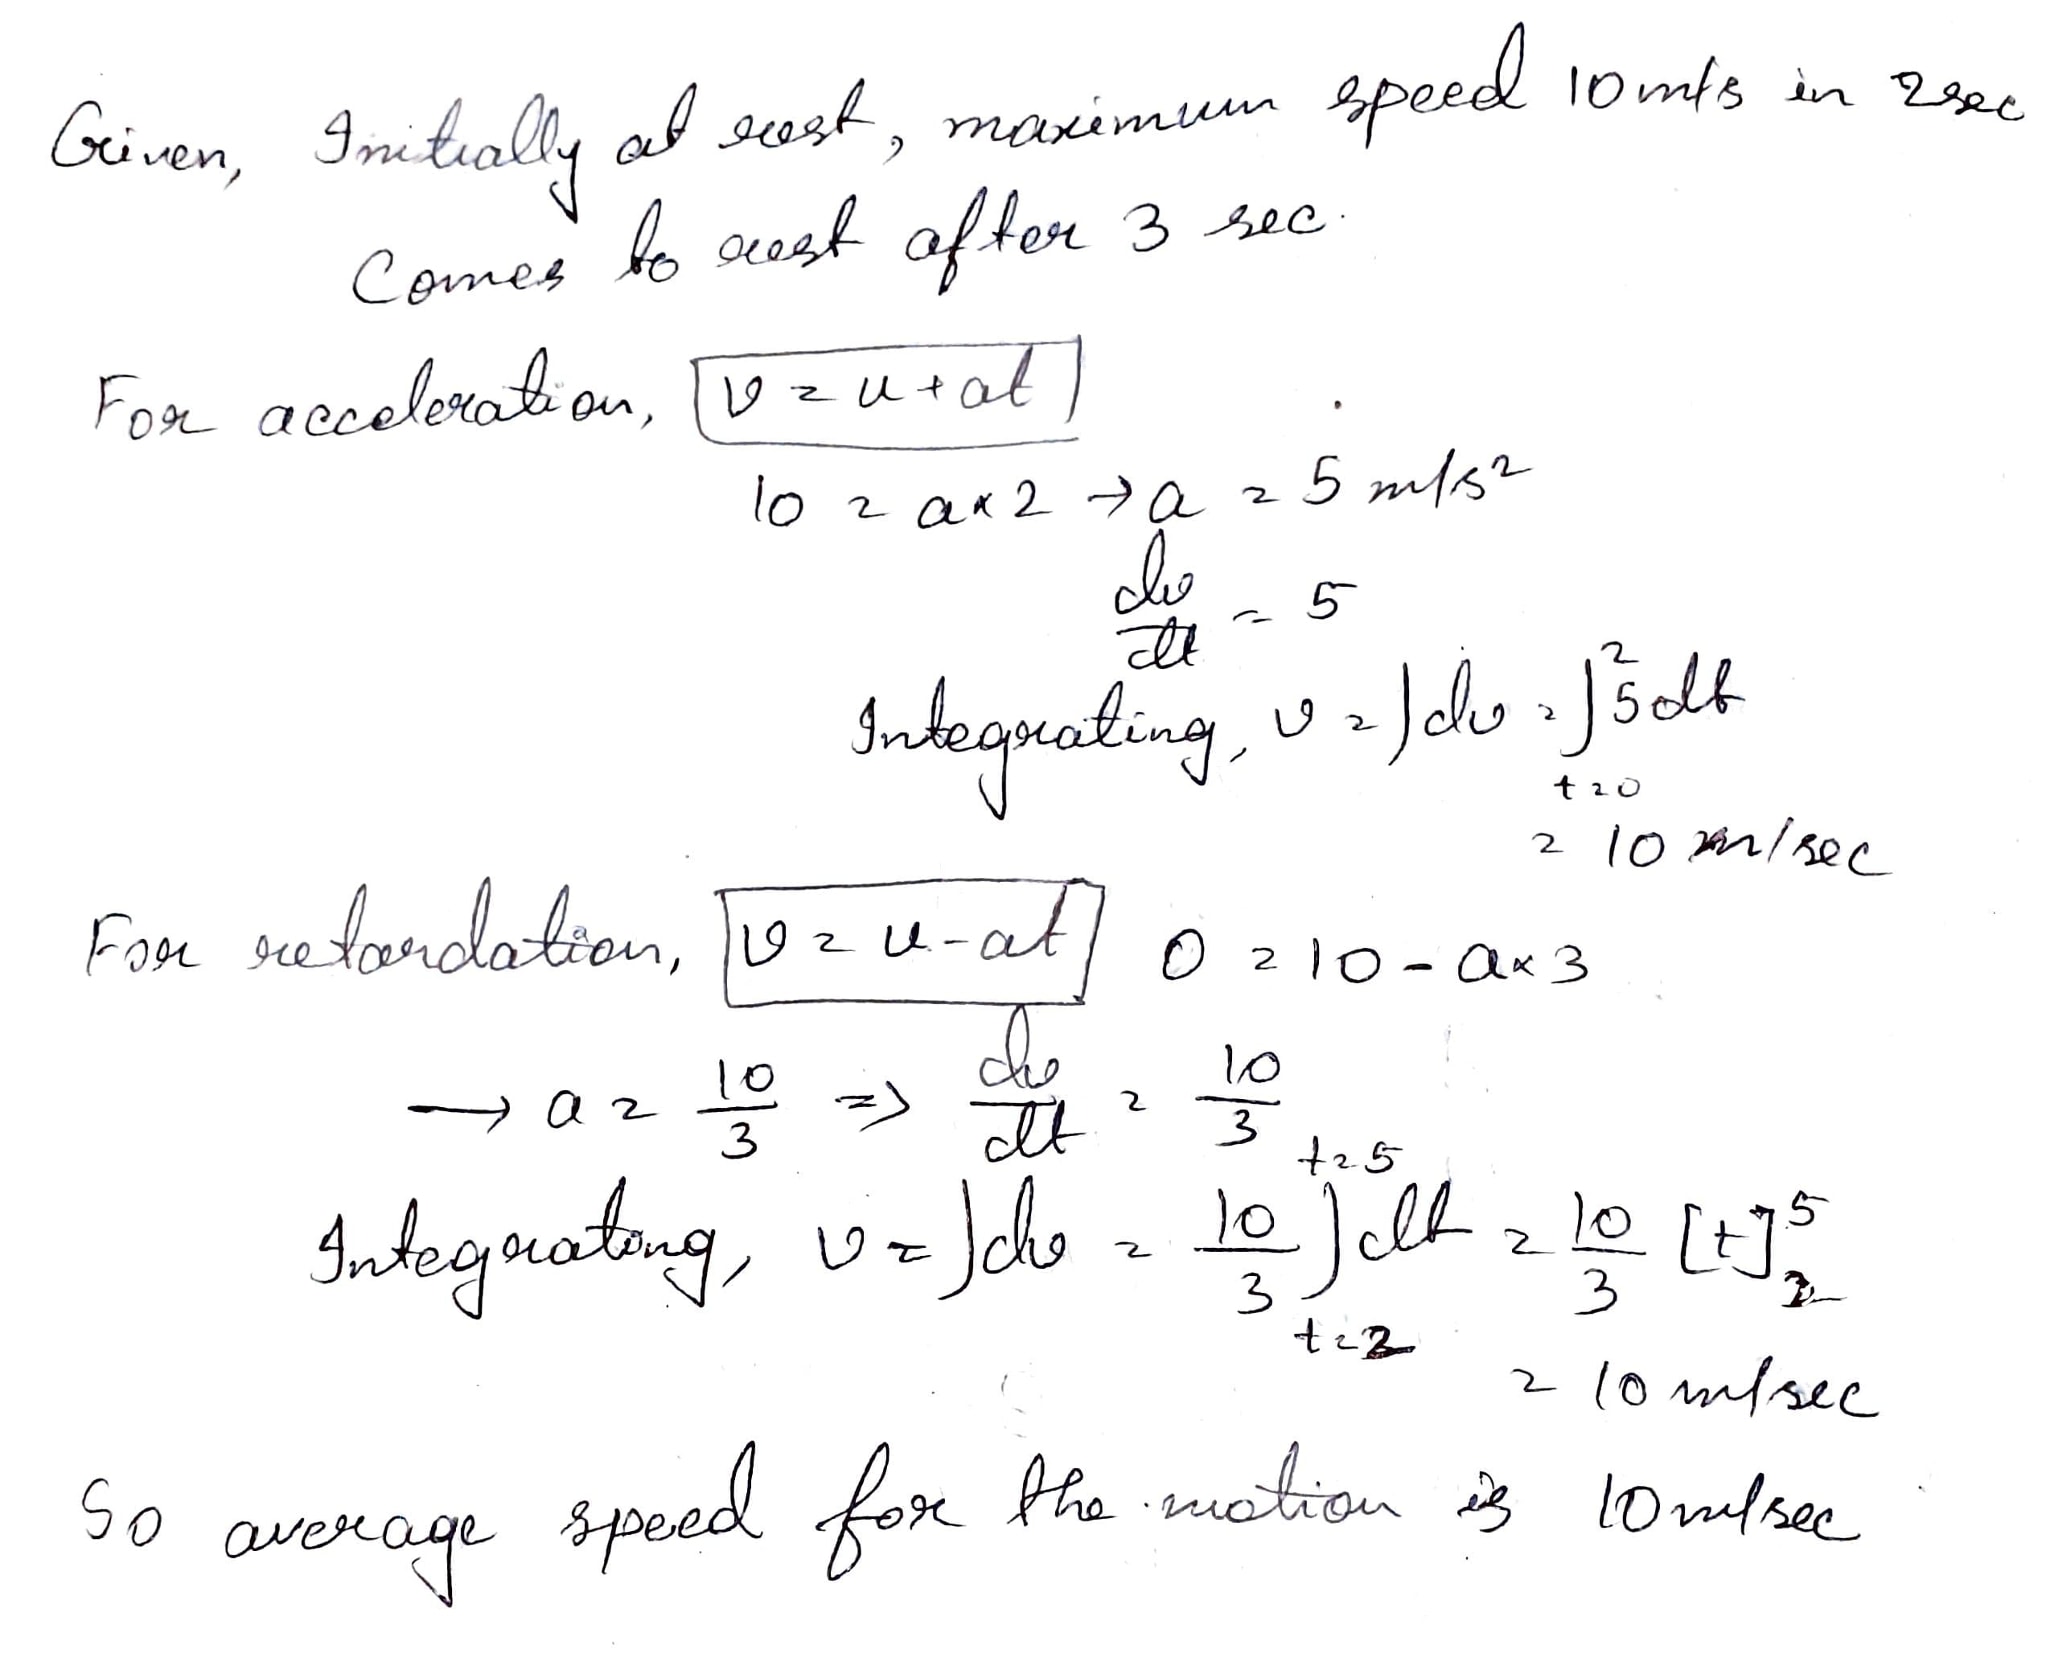 Given, Initially at rest, maximum speed 10 m/s in 2sec
Comes to rest after 3 sec.
For acceleration, v = u + at
10 = a × 2 → a = 5 m/s²
dv/dt = 5
Integrating, v = ∫dv = ∫_{t=0}^{2} 5dt
= 10 m/sec
For retardation, v = u - at 0 = 10 - a × 3
→ a = 10/3 ⇒ dv/dt = 10/3
Integrating, v = ∫dv = 10/3 ∫_{t=2}^{t=5} dt = 10/3 [t]_2^5
= 10 m/sec
So average speed for the motion is 10 m/sec